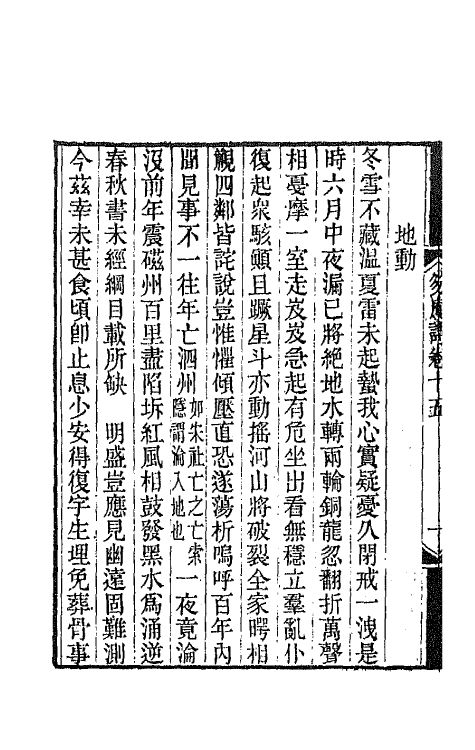 地動
冬雪不藏溫夏雷未起蟄我心實疑憂久閉戒一洩是
時六月中夜漏已將絕地水轉兩輪銅龍忽翻折萬聲
相戛摩一室走岌岌急起有危坐出看無穩立羣亂仆
復起衆駭顛且蹶星斗亦動搖河山將破裂全家愕相
觀四鄰皆詫說豈惟懼傾壓直恐遂蕩析嗚呼百年內
聞見事不一往年亡泗州如宋社亡之亡索隱謂淪入地也一夜竟淪
沒前年震磁州百里盡陷坼紅風相鼓發黑水爲涌逆
春秋書未經綱目載所缺 明盛豈應見幽遠固難測
今茲幸未甚食頃卽止息少安得復字生理免葬骨事
卷十五